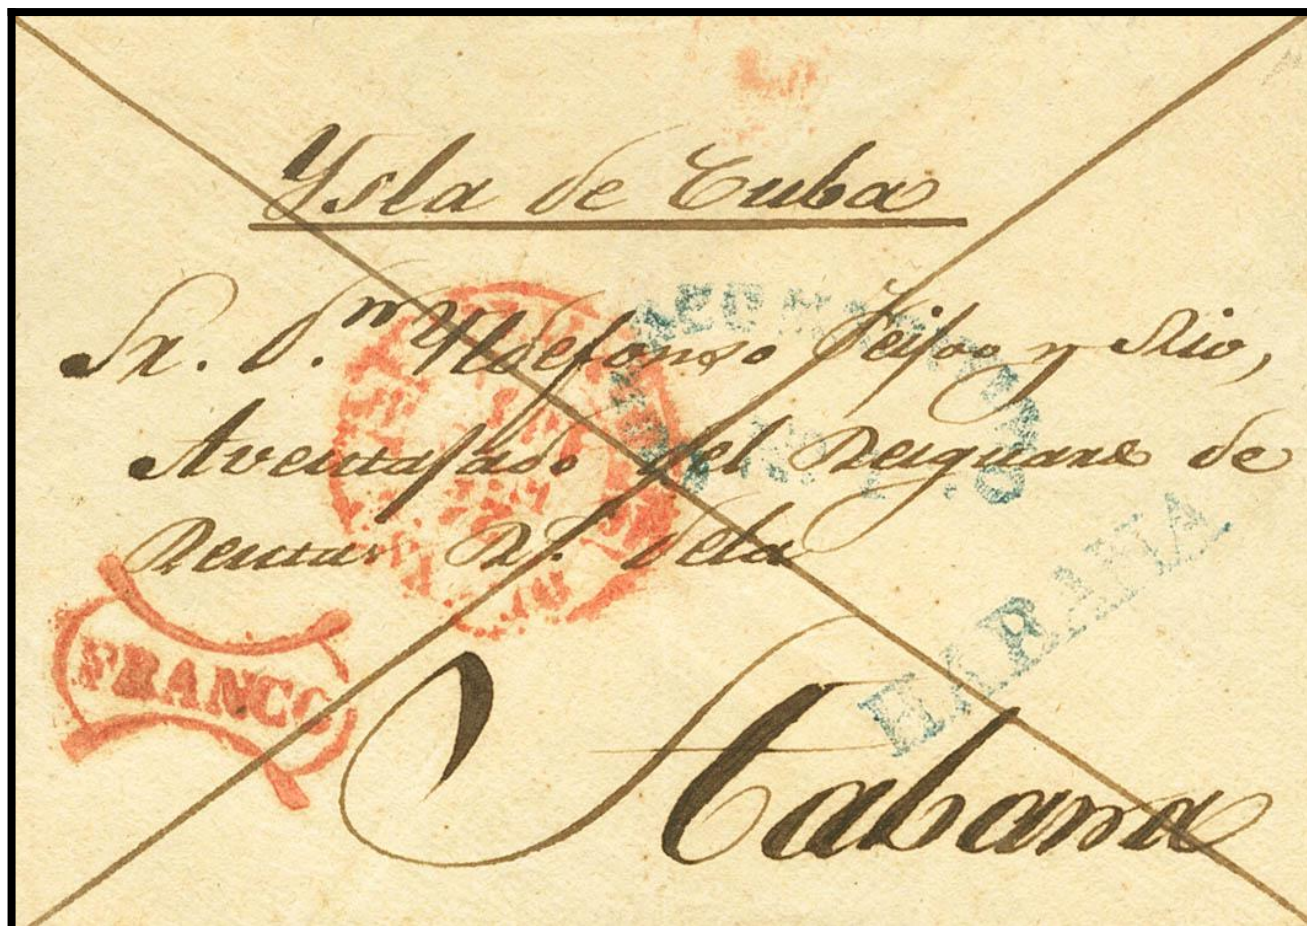 Ysla de Cuba
Sr. D.n Yldefonso Feijoo y Rio,
Aventajado del Resguardo de
Rentas R.s de la
Habana
FRANCO
HABANA